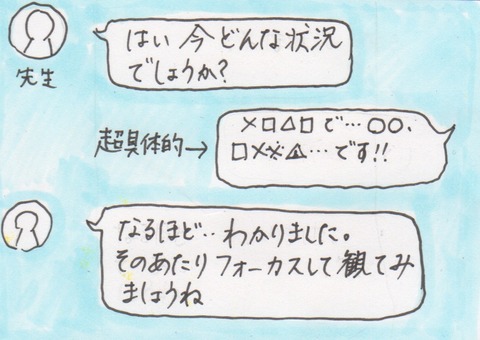 はい 今 どんな状況
でしょうか?
先生
×□△□で…○○、
超具体的→
□××△…です!!
なるほど‥わかりました。
そのあたりフォーカスして観てみ
ましょうね